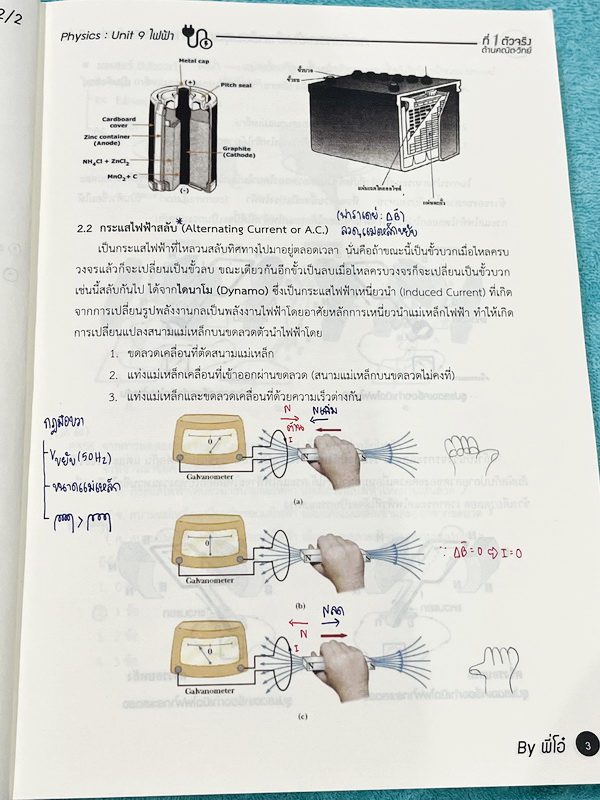 2/2
Physics : Unit 9 ไฟฟ้า
ที่ 1 ตัวจริง
ด้านคณิต-วิทย์
Metal cap
(+)
Pitch seal
Cardboard
cover
Zinc container
(Anode)
NH4Cl + ZnCl2
MnO2 + C
Graphite
(Cathode)
(-)
ขั้วบวก
ขั้วลบ
2.2 กระแสไฟฟ้าสลับ* (Alternating Current or A.C.)
(ฟาราเดย์ : ΔB)
ลวด, แม่เหล็กขยับ
เป็นกระแสไฟฟ้าที่ไหลวนสลับทิศทางไปมาอยู่ตลอดเวลา นั่นคือถ้าขณะนี้เป็นขั้วบวกเมื่อไหลครบ
วงจรแล้วก็จะเปลี่ยนเป็นขั้วลบ ขณะเดียวกันอีกขั้วเป็นลบเมื่อไหลครบวงจรก็จะเปลี่ยนเป็นขั้วบวก
เช่นนี้สลับกันไป ได้จากไดนาโม (Dynamo) ซึ่งเป็นกระแสไฟฟ้าเหนี่ยวนำ (Induced Current) ที่เกิด
จากการเปลี่ยนรูปพลังงานกลเป็นพลังงานไฟฟ้าโดยอาศัยหลักการเหนี่ยวนำแม่เหล็กไฟฟ้า ทำให้เกิด
การเปลี่ยนแปลงสนามแม่เหล็กบนขดลวดตัวนำไฟฟ้าโดย
1. ขดลวดเคลื่อนที่ตัดสนามแม่เหล็ก
2. แท่งแม่เหล็กเคลื่อนที่เข้าออกผ่านขดลวด (สนามแม่เหล็กบนขดลวดไม่คงที่)
3. แท่งแม่เหล็กและขดลวดเคลื่อนที่ด้วยความเร็วต่างกัน
กฎมือขวา
Vขยับ (50Hz)
ขนาดแม่เหล็ก
>
N
Nเพิ่ม
ต้าน
I
0
N
Galvanometer
(a)
0
N
Galvanometer
(b)
∵ ΔB = 0 ⇨ I = 0
Nลด
N
I
0
N
Galvanometer
(c)
By พี่โอ๋
3